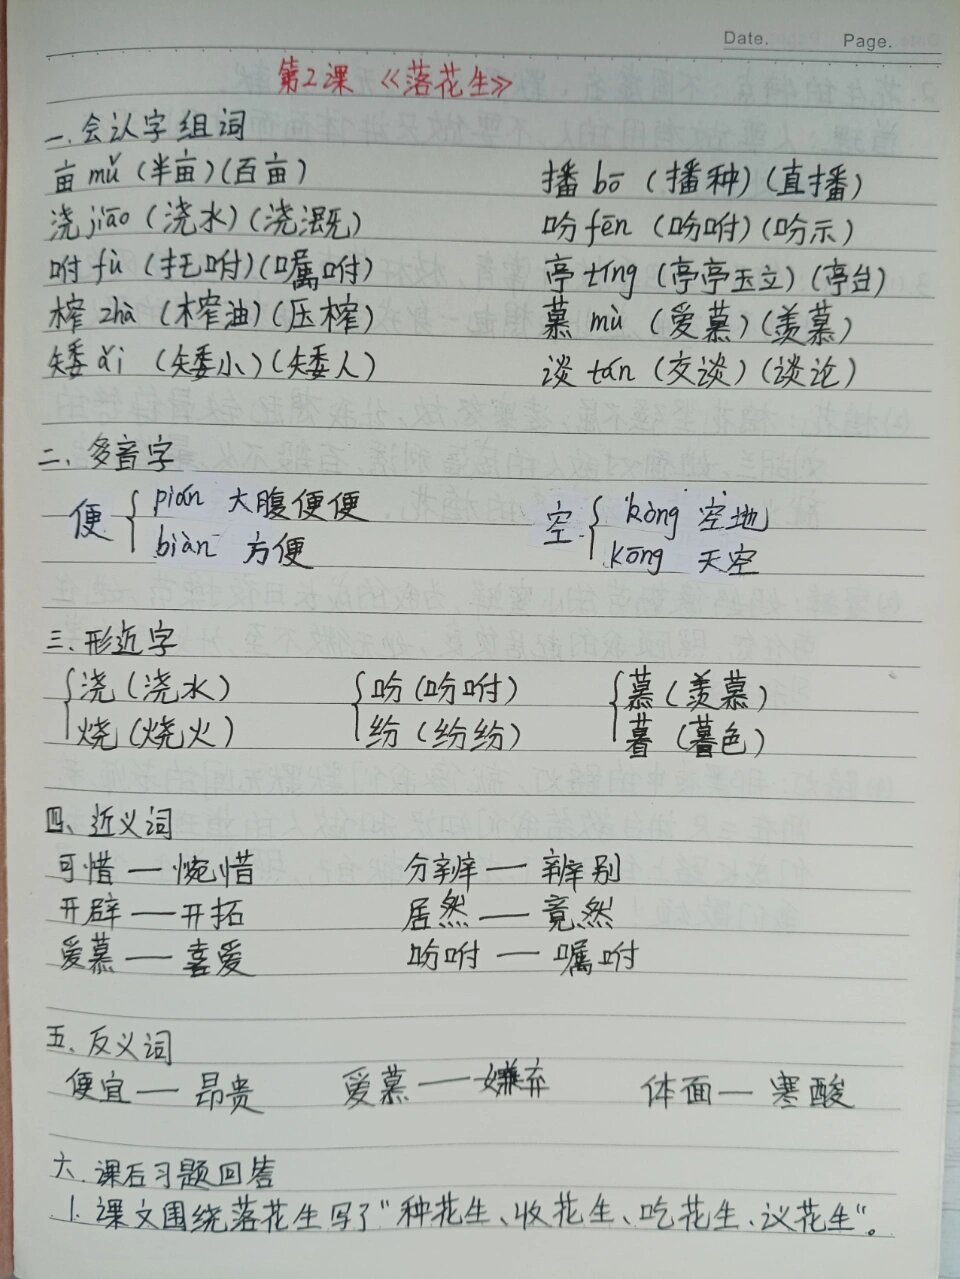 Date.
Page.
第2课 《落花生》
一、会认字组词
亩 mǔ (半亩)(百亩)
播 bō (播种)(直播)
浇 jiāo (浇水)(浇溉)
吩 fēn (吩咐)(吩示)
咐 fù (托咐)(嘱咐)
亭 tíng (亭亭玉立)(亭台)
榨 zhà (榨油)(压榨)
慕 mù (爱慕)(羡慕)
矮 ǎi (矮小)(矮人)
谈 tán (交谈)(谈论)
二、多音字
便 { pián 大腹便便
biàn 方便
空 { kòng 空地
kōng 天空
三、形近字
{ 浇 (浇水)
烧 (烧火)
{ 吩 (吩咐)
纷 (纷纷)
{ 慕 (羡慕)
暮 (暮色)
四、近义词
可惜 — 惋惜 分辨 — 辨别
开辟 — 开拓 居然 — 竟然
爱慕 — 喜爱 吩咐 — 嘱咐
五、反义词
便宜 — 昂贵 爱慕 — 嫌弃 体面 — 寒酸
六、课后习题回答
1. 课文围绕落花生写了“种花生、收花生、吃花生、议花生”。